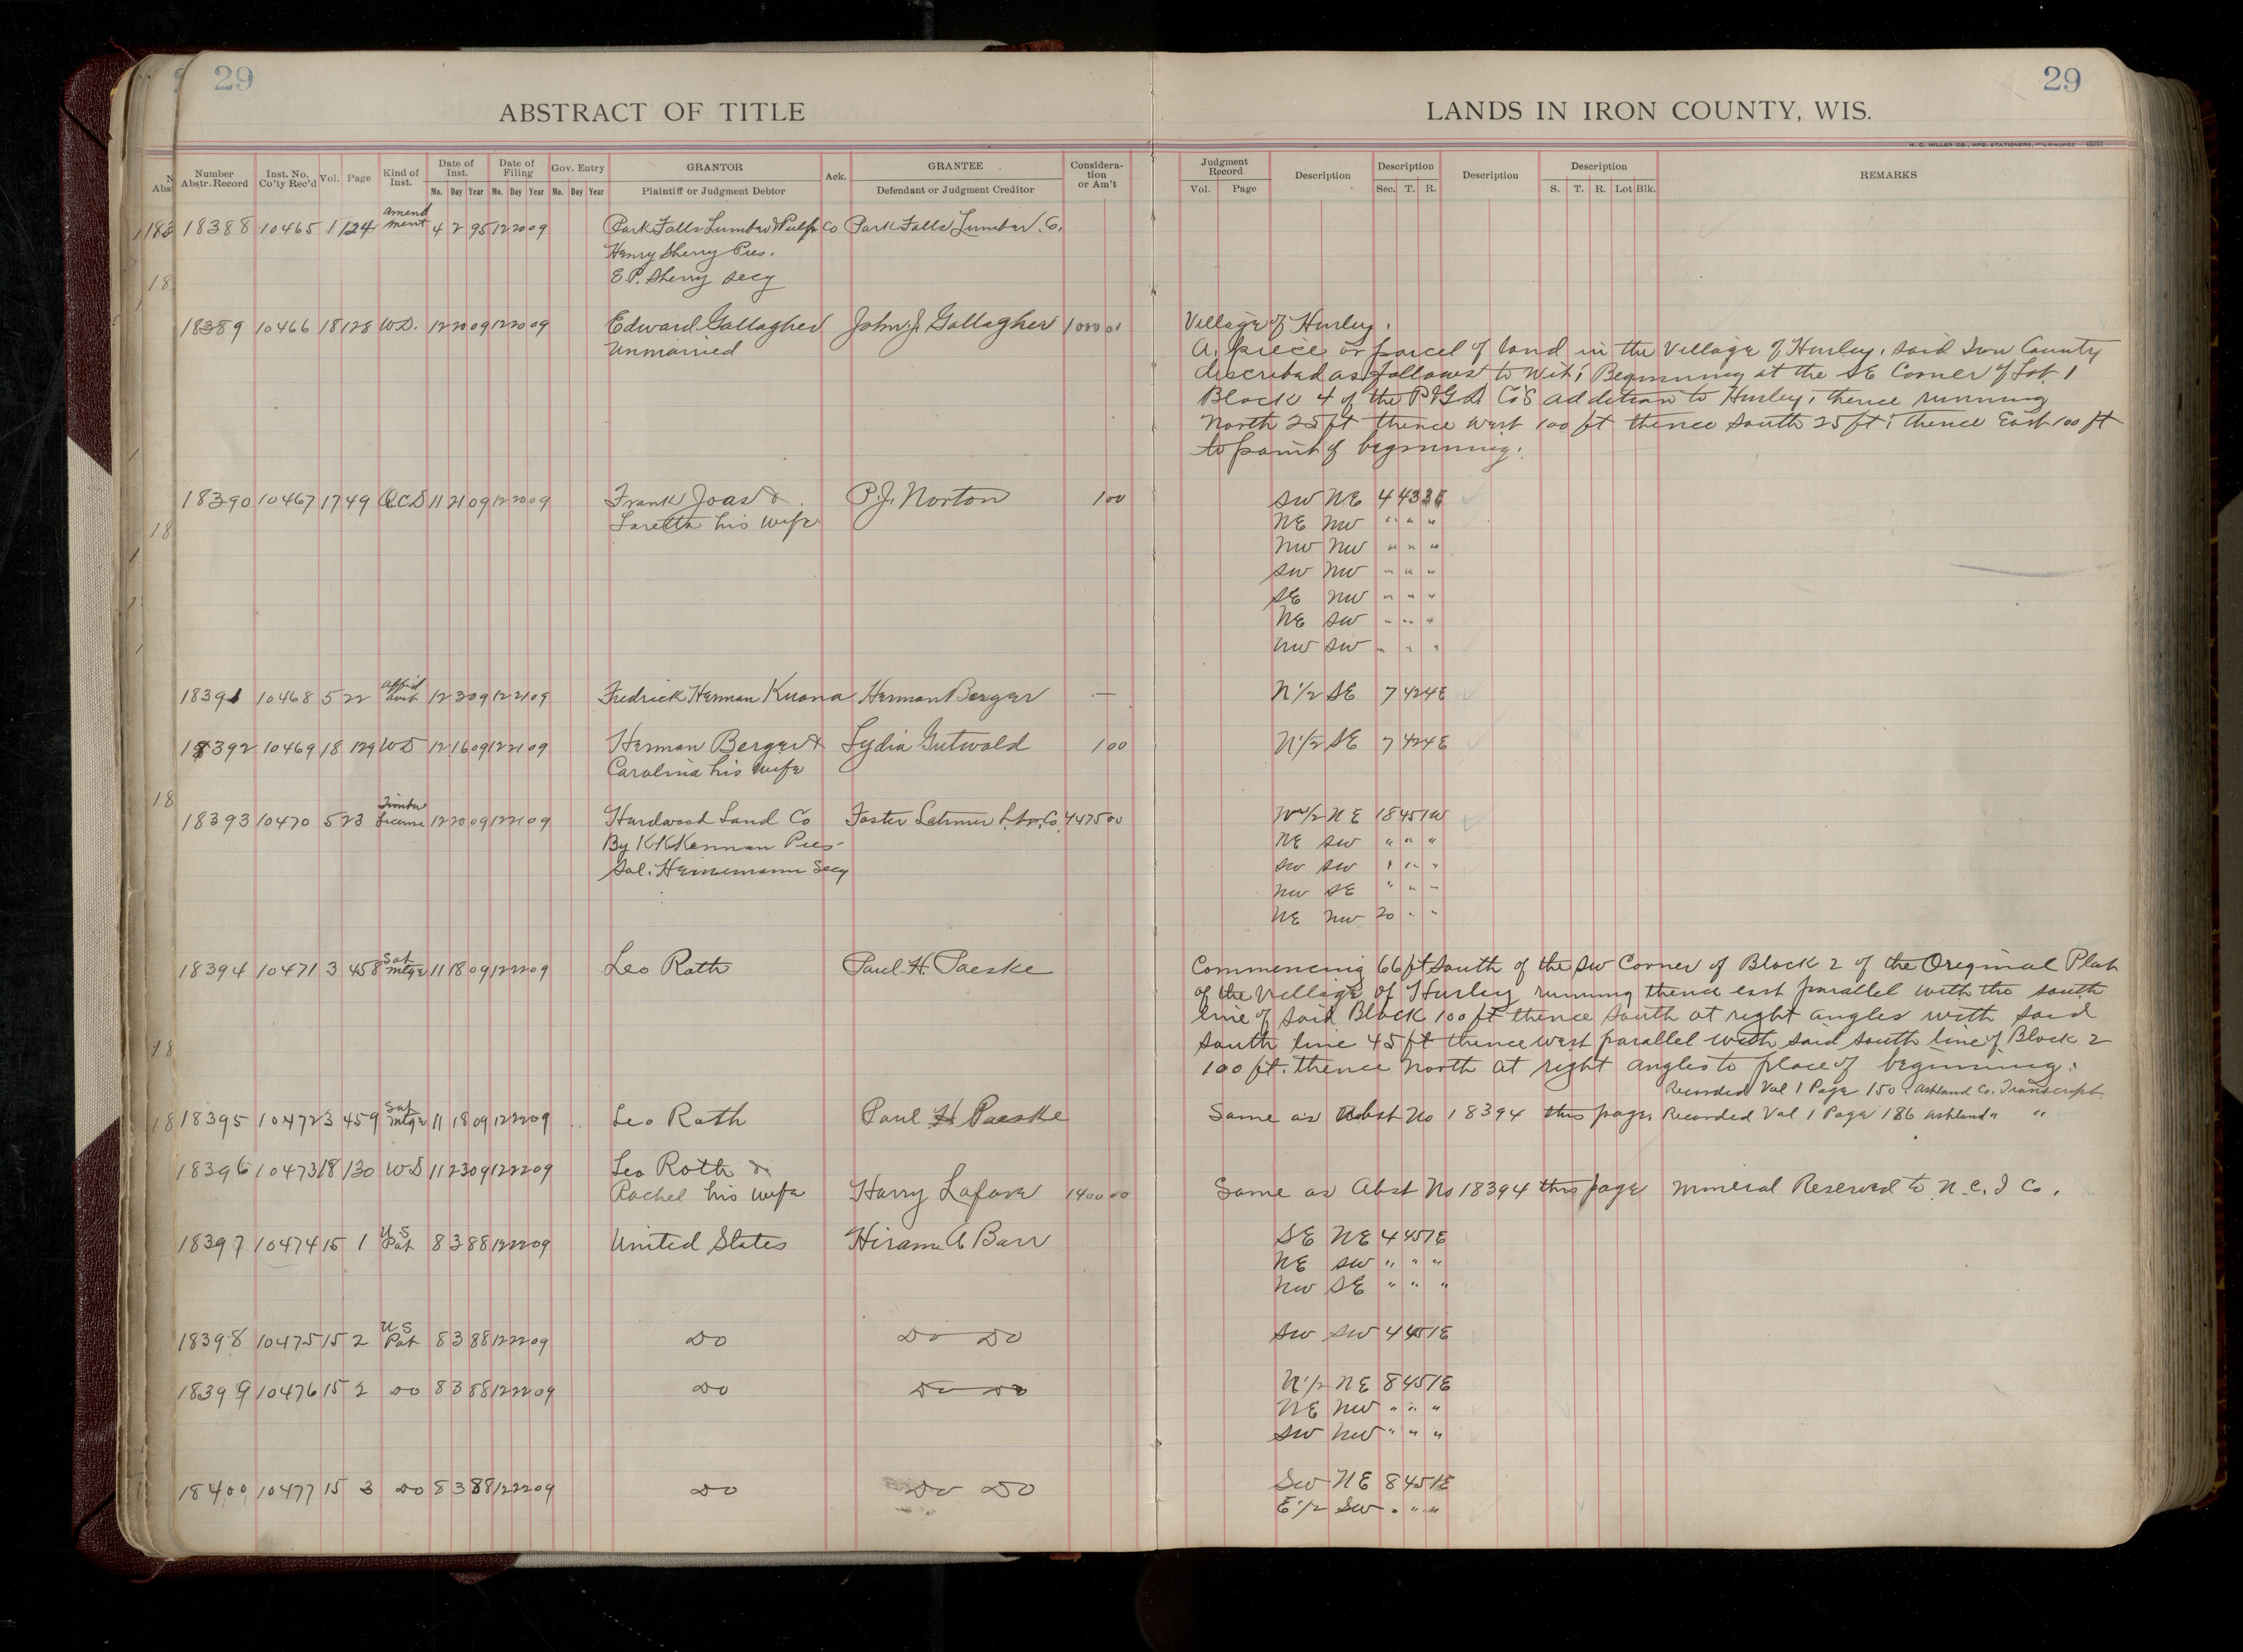 29
29
ABSTRACT OF TITLE
LANDS IN IRON COUNTY, WIS.
H. C. MILLER CO., MFG. STATIONERS, MILWAUKEE
Number Abstr. Record
Inst. No. Co'ty Rec'd
Vol.
Page
Kind of Inst.
Date of Inst. Mo. Day Year
Date of Filing Mo. Day Year
Gov. Entry Mo. Day Year
GRANTOR
Plaintiff or Judgment Debtor
Ack.
GRANTEE
Defendant or Judgment Creditor
Considera-tion or Am't
Judgment Record Vol. Page
Description
Description Sec. T. R.
Description
Description S. T. R. Lot Blk.
REMARKS
18388 10465 1 124 amend ment 4 2 95 12 20 09 Park Falls Lumber & Pulp Co Park Falls Lumber Co.
Henry Sherry Pres.
E.P. Sherry Secy
18389 10466 18 128 W.D. 12 20 09 12 20 09 Edward Gallagher John J. Gallagher 1000 00 Village of Hurley.
Unmarried
A. piece or parcel of land in the Village of Hurley, said Iron County
described as follows to Wit; Beginning at the SE Corner of Lot 1
Block 4 of the Co's addition to Hurley, thence running
North 25 ft thence West 100 ft thence South 25 ft; thence East 100 ft
to point of beginning.
18390 10467 17 49 QCD 11 21 09 12 20 09 Frank Joas & P.J. Norton 1 00 SW NE 4 43 3E
Laretta his wife NE NW " " "
NW NW " " "
SW NW " " "
SE NW " " "
NE SW " " "
NW SW " " "
18391 10468 5 22 affid avit 12 3 09 12 21 09 Fredrick Herman Kuona Herman Berger — N 1/2 SE 7 42 4E
18392 10469 18 129 WD 12 16 09 12 21 09 Herman Berger & Lydia Gutwald 1 00 N 1/2 SE 7 42 4E
Carolina his wife
18393 10470 5 23 Timber License 12 20 09 12 21 09 Hardwood Land Co Foster Latimer Lbr. Co. 4475 00 W 1/2 NE 18 45 1W
By K K Kennan Pres. NE SW " " "
Sal. Heinemann Secy SW SW " " "
NW SE " " "
NE NW 20 " "
18394 10471 3 458 Sat mtge 11 18 09 12 22 09 Leo Rath Paul H. Paeske Commencing 66 ft South of the SW Corner of Block 2 of the Original Plat
of the Village of Hurley running thence east parallel with the south
line of said Block 100 ft thence South at right angles with said
south line 45 ft thence west parallel with said south line of Block 2
100 ft. thence North at right angles to place of beginning.
Recorded Vol 1 Page 150 Ashland Co. Transcript
18395 10472 3 459 Sat mtge 11 18 09 12 22 09 Leo Rath Paul H Paeske Same as Abst No 18394 this page. Recorded Vol 1 Page 186 Ashland " "
18396 10473 18 130 WD 11 23 09 12 22 09 Leo Rath &
Rachel his wife Harry Lafave 1400 00 Same as Abst No 18394 this page mineral Reserved to N. C. I Co.
18397 10474 15 1 US Pat 8 3 88 12 22 09 United States Hiram A Barr SE NE 4 45 1E
NE SW " " "
NW SE " " "
18398 10475 15 2 US Pat 8 3 88 12 22 09 Do Do Do SW SW 4 45 1E
18399 10476 15 2 Do 8 3 88 12 22 09 Do Do Do N 1/2 NE 8 45 1E
NE NW " " "
SW NW " " "
18400 10477 15 3 Do 8 3 88 12 22 09 Do Do Do SW NE 8 45 1E
E 1/2 SW " " "